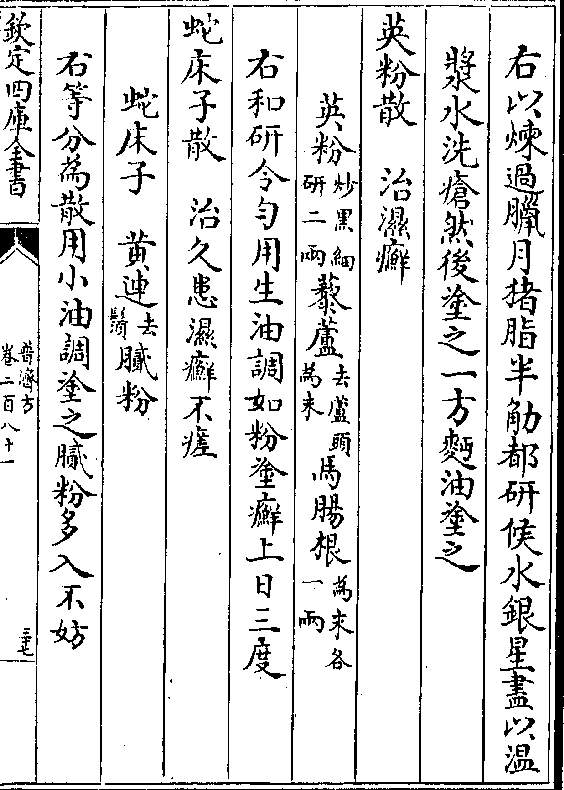 右以煉過臘月猪脂半觔都研候水銀星盡以温
漿水洗瘡然後塗之一方麪油塗之
英粉散　治濕癬
英粉炒黑細研二兩藜蘆去蘆頭為末馬腸根為末各一兩
右和研令勻用生油調如粉塗癬上日三度
蛇床子散　治久患濕癬不瘥
蛇床子　黄連去鬚　膩粉
右等分為散用小油調塗之膩粉多入不妨
欽定四庫全書
普濟方
卷二百八十一
三七